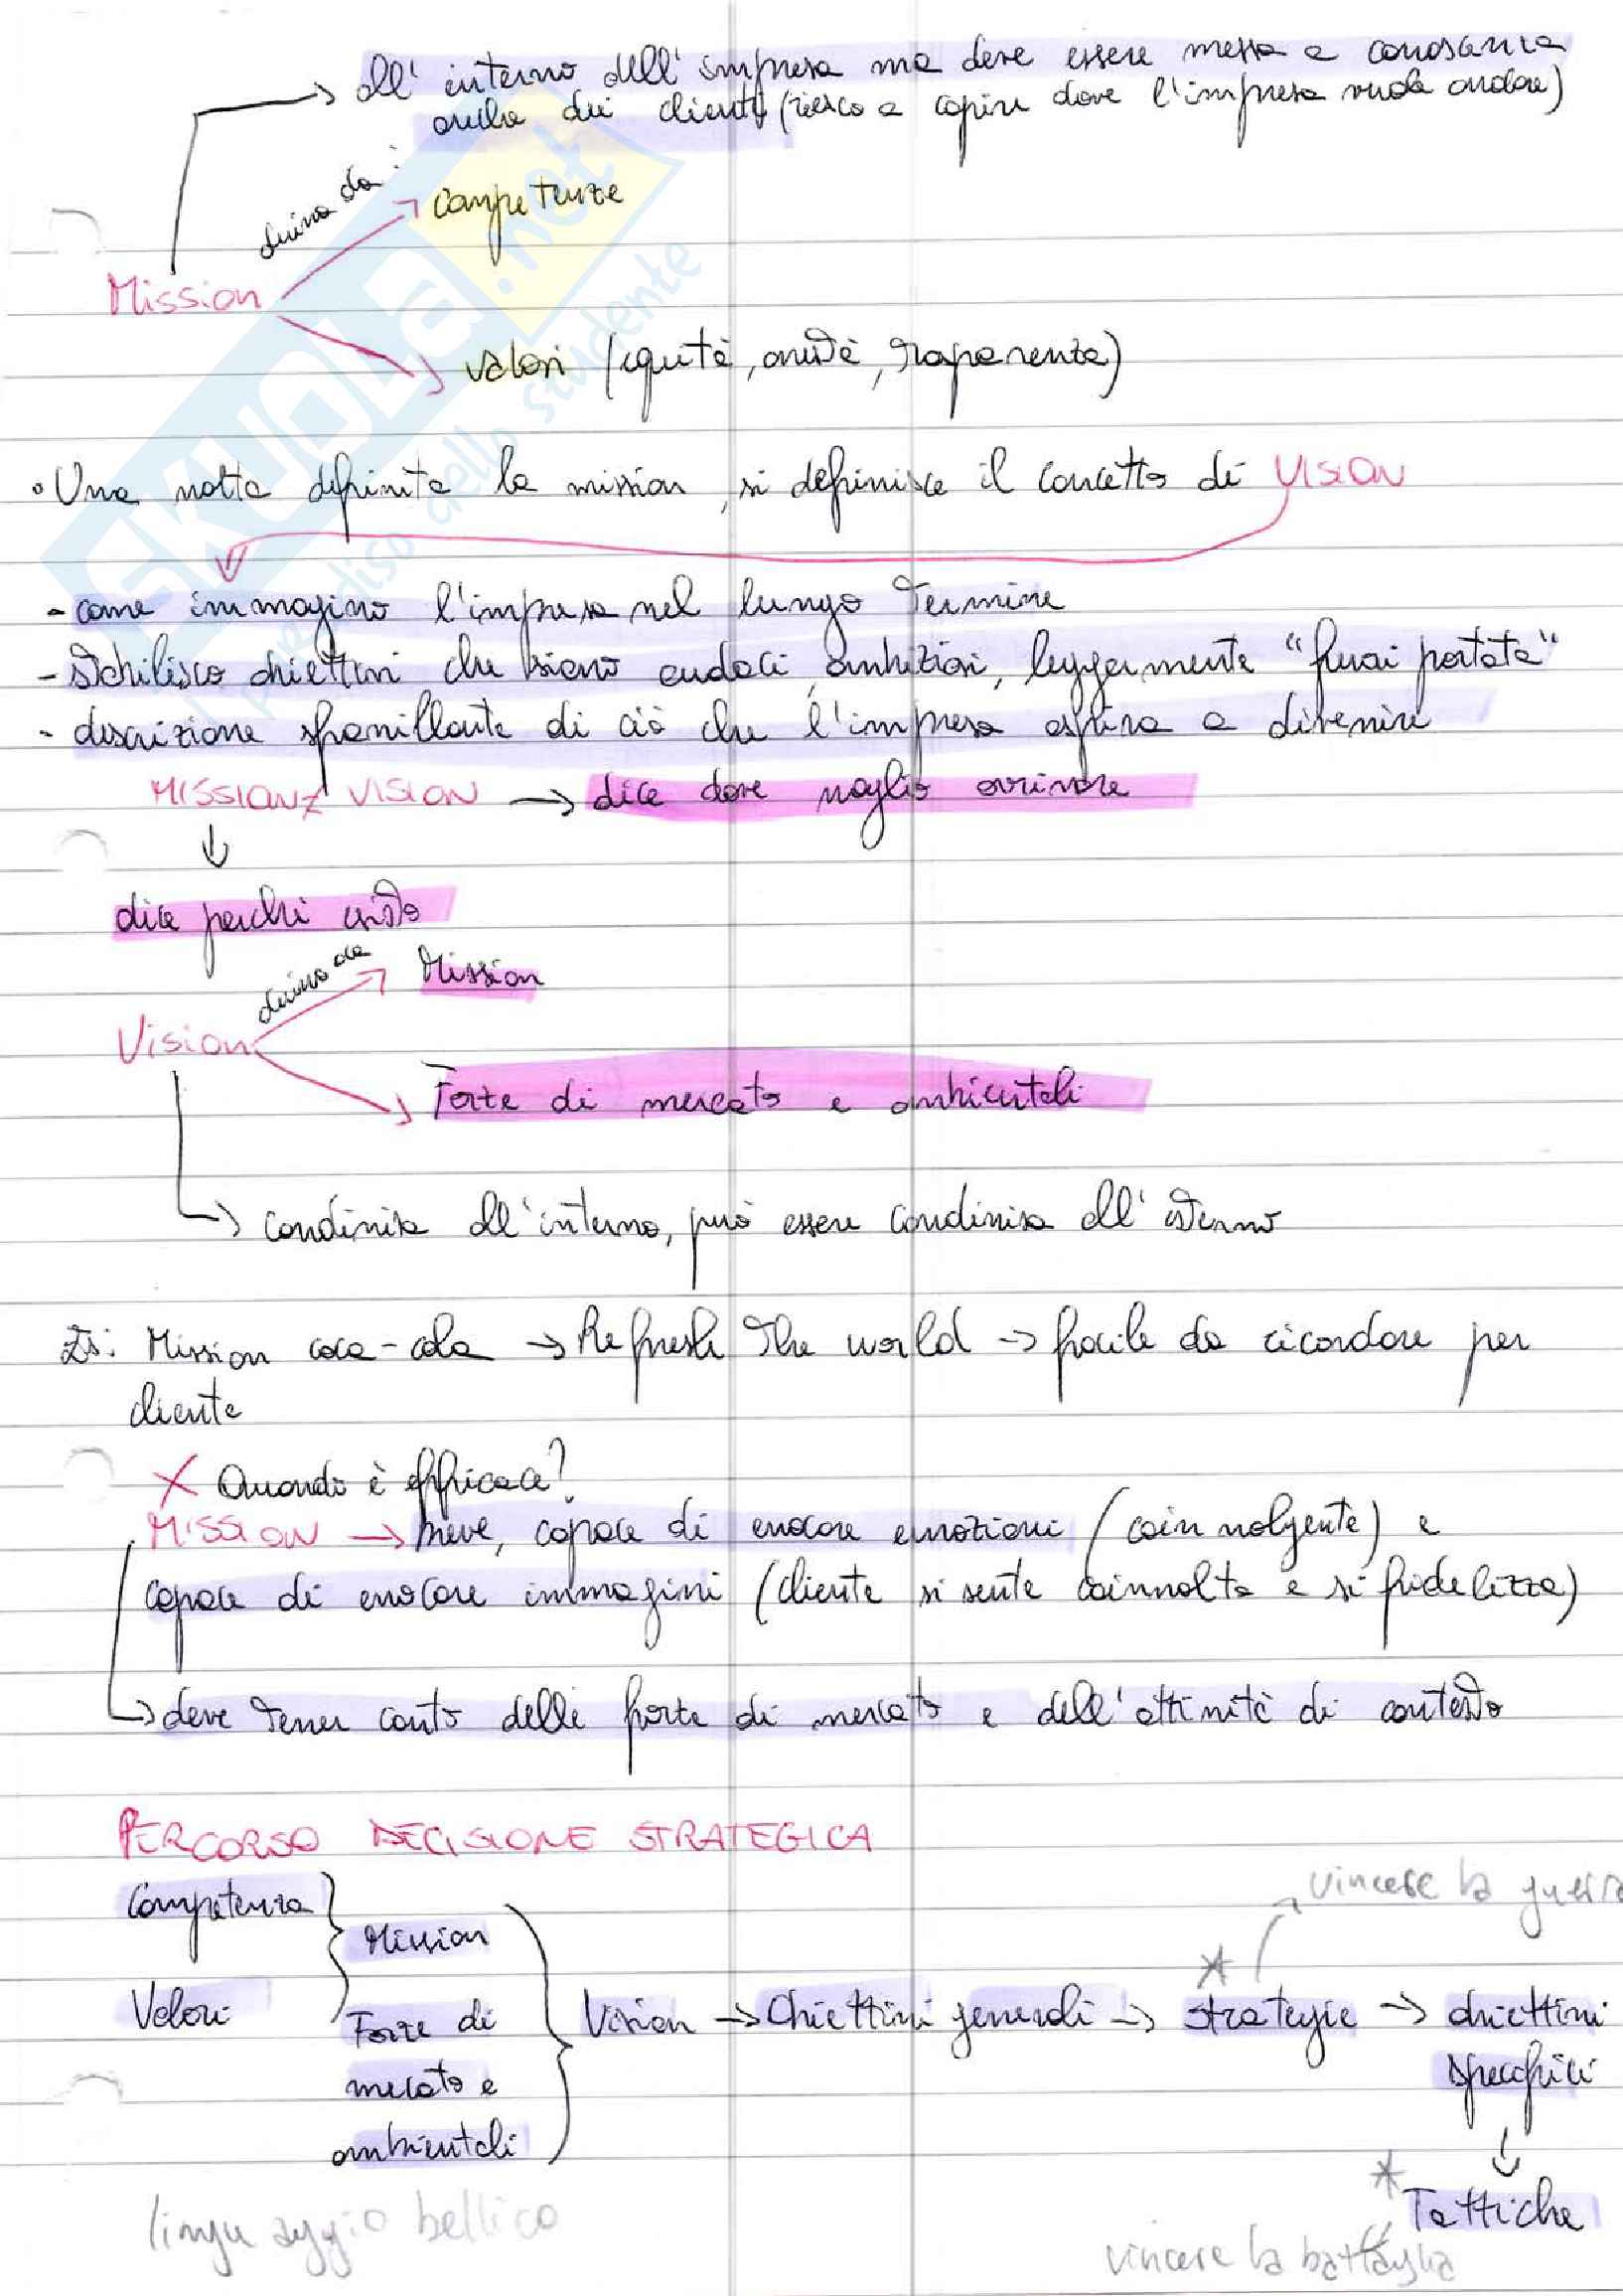 all'interno dell'impresa ma deve essere messa a conoscenza
anche dei clienti (riesco a capire dove l'impresa vuole andare)
deriva da:
competenze
Mission
valori (equità, onestà, trasparenza)
• Una volta definita la mission, si definisce il concetto di VISION
- come immagino l'impresa nel lungo termine
- stabilisco obiettivi che siano audaci, ambiziosi, leggermente "fuori portata"
- descrizione sfavillante di ciò che l'impresa aspira a divenire
MISSION ≠ VISION → dice dove voglio arrivare
↓
dice perché esisto
deriva da
Mission
Vision
Forze di mercato e ambientali
→ condivisa all'interno, può essere condivisa all'esterno
Es: Mission coca-cola → Refresh the world → facile da ricordare per
cliente
X Quando è efficace?
MISSION → breve, capace di evocare emozioni (coinvolgente) e
capace di evocare immagini (cliente si sente coinvolto e si fidelizza)
→ deve tener conto delle forze di mercato e dell'attività di contesto
PERCORSO DECISIONE STRATEGICA
vincere la guerra
Competenza
Mission
Valori
Forze di
mercato e
ambientali
Vision → Obiettivi generali → strategie → obiettivi
specifici
↓
* Tattiche
linguaggio bellico
vincere la battaglia
SKUOLA.net
paradiso dello studente